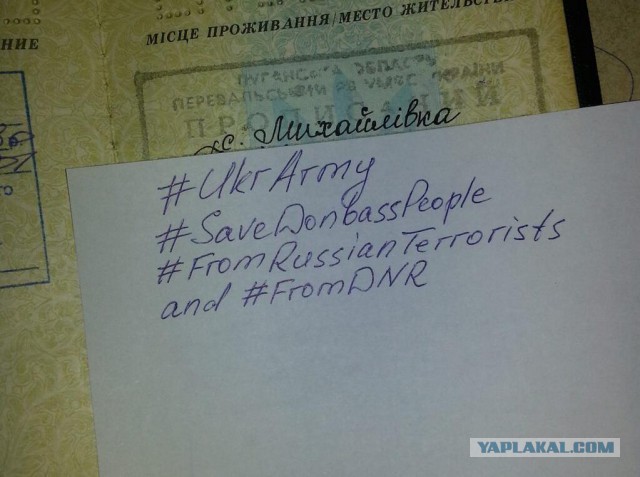 МІСЦЕ ПРОЖИВАННЯ/МЕСТО ЖИТЕЛЬСТВ
НИЕ
ЛУГАНСЬКА ОБЛАСТЬ
ПЕРЕВАЛЬСЬКИЙ РВ УМВС УКРАЇНИ
ПРОПИСАНИЙ
с. Михайлівка
#UkrArmy
#SaveDonbassPeople
#FromRussianTerrorists
and #FromDNR
YAPLAKAL.COM